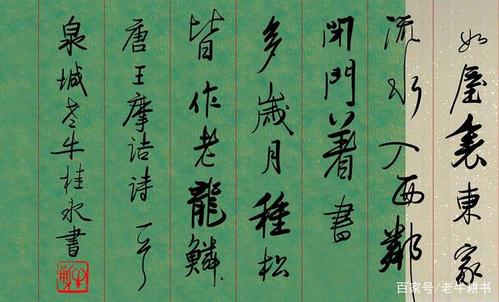 如屋裏東家
流水入西鄰
閉門著書
多歲月種松
皆作老龍鱗
唐王摩詰詩一首
泉城老牛桂永書
百家号/老牛耕书